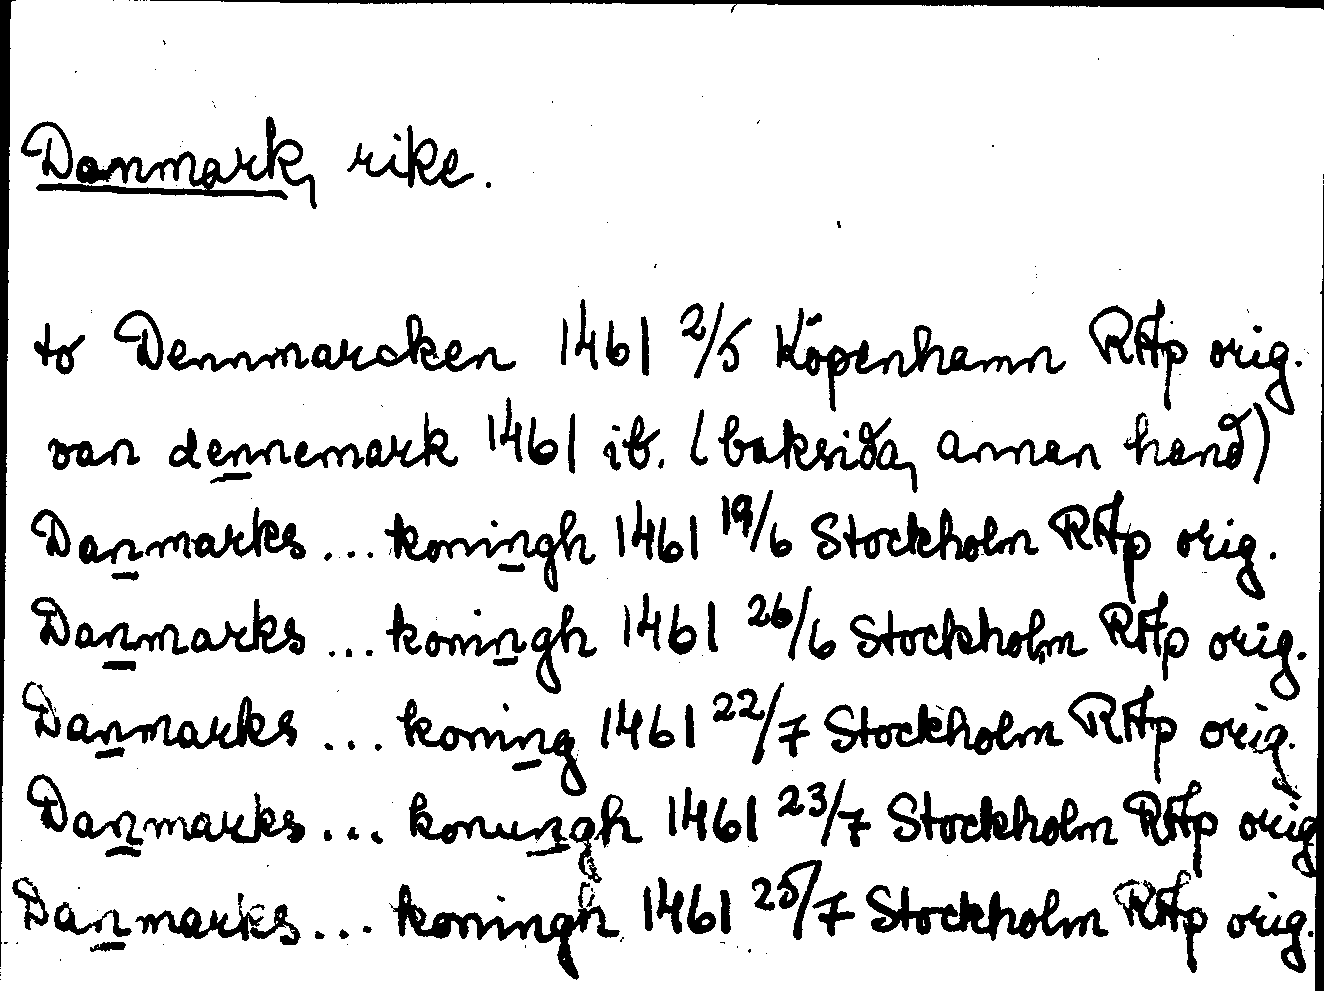 Danmark, rike.
to Dennmarcken 1461 2/5 Köpenhamn RAp orig.
van dennemark 1461 ib. (baksida, annan hand)
Danmarks ... koningh 1461 19/6 Stockholm RAp orig.
Danmarks ... koningh 1461 26/6 Stockholm RAp orig.
Danmarks ... koning 1461 22/7 Stockholm RAp orig.
Danmarks ... konungh 1461 23/7 Stockholm RAp orig
Danmarks ... koningh 1461 25/7 Stockholm RAp orig.